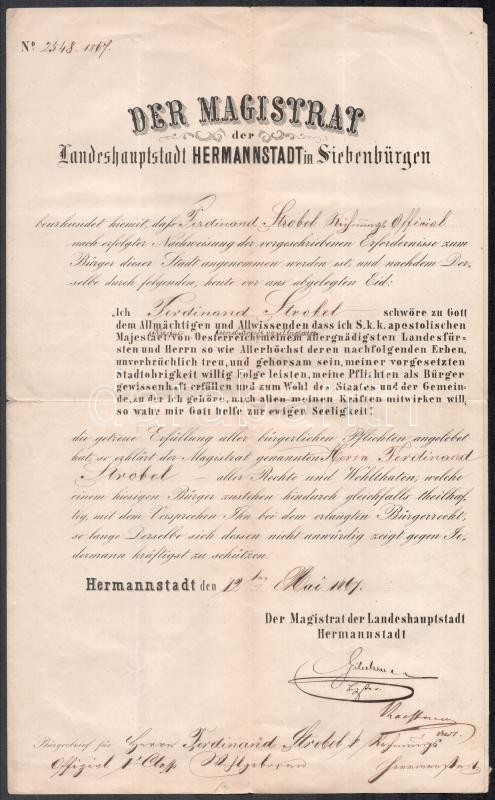 No 2548. 1867.
DER MAGISTRAT
der
Landeshauptstadt HERMANNSTADT in Siebenbürgen
beurkundet hiemit, daß Ferdinand Strobel Rechnungs Official
nach erfolgter Nachweisung der vorgeschriebenen Erfordernisse zum
Bürger dieser Stadt angenommen worden ist und nachdem Der-
selbe durch folgenden, heute vor uns abgelegten Eid:
„Ich Ferdinand Strobel schwöre zu Gott
dem Allmächtigen und Allwissenden dass ich S.k.k.apostolischen
Majestät von Oesterreich meinem allergnädigsten Landesfür-
sten und Herrn so wie Allerhöchst deren nachfolgenden Erben,
unverbrüchlich treu, und gehorsam sein, meiner vorgesetzten
Stadtobrigkeit willig Folge leisten, meine Pflichten als Bürger
gewissenhaft erfüllen und zum Wohl des Staates und der Gemein-
de, zu der ich gehöre, nach allen meinen Kräften mitwirken will,
so wahr mir Gott helfe zur ewigen Seeligkeit!
die getreue Erfüllung aller bürgerlichen Pflichten angelobet
hat, so erklärt der Magistrat genannten Herrn Ferdinand
Strobel aller Rechte und Wohlthaten, welche
einem hiesigen Bürger zustehen hindurch gleichfalls theilhaf-
tig, mit dem Versprechen Ihn bei dem erlangten Bürgerrecht,
so lange Derselbe sich dessen nicht unwürdig zeigt gegen Je-
dermann kräftigst zu schützen.
Hermannstadt den 12ten Mai 1867.
Der Magistrat der Landeshauptstadt
Hermannstadt
Bürgerbrief für Herrn Ferdinand Strobel k. Rechnungs
Official 1r Classe Hermannstadt